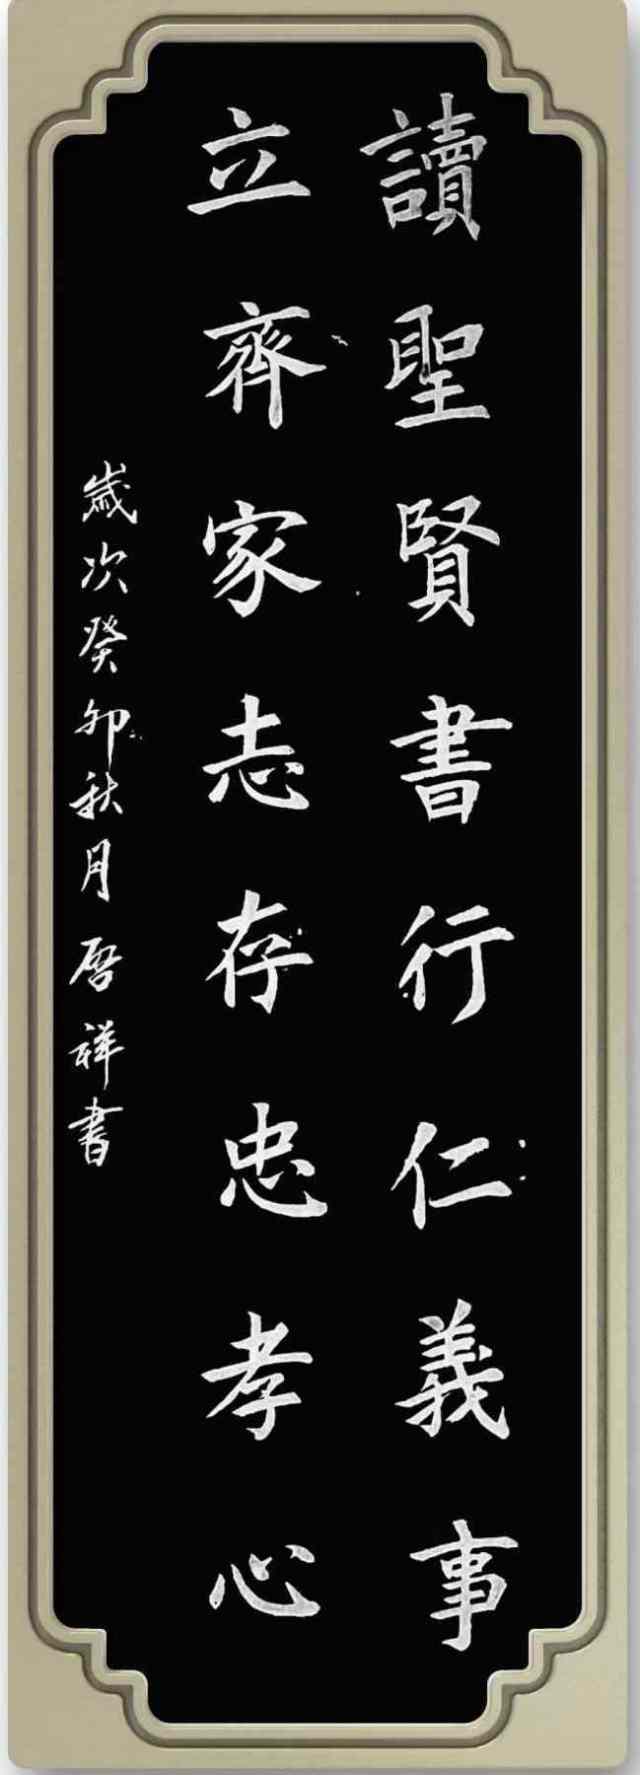 讀聖賢書行仁義事
立齊家志存忠孝心
歲次癸卯秋月啓祥書